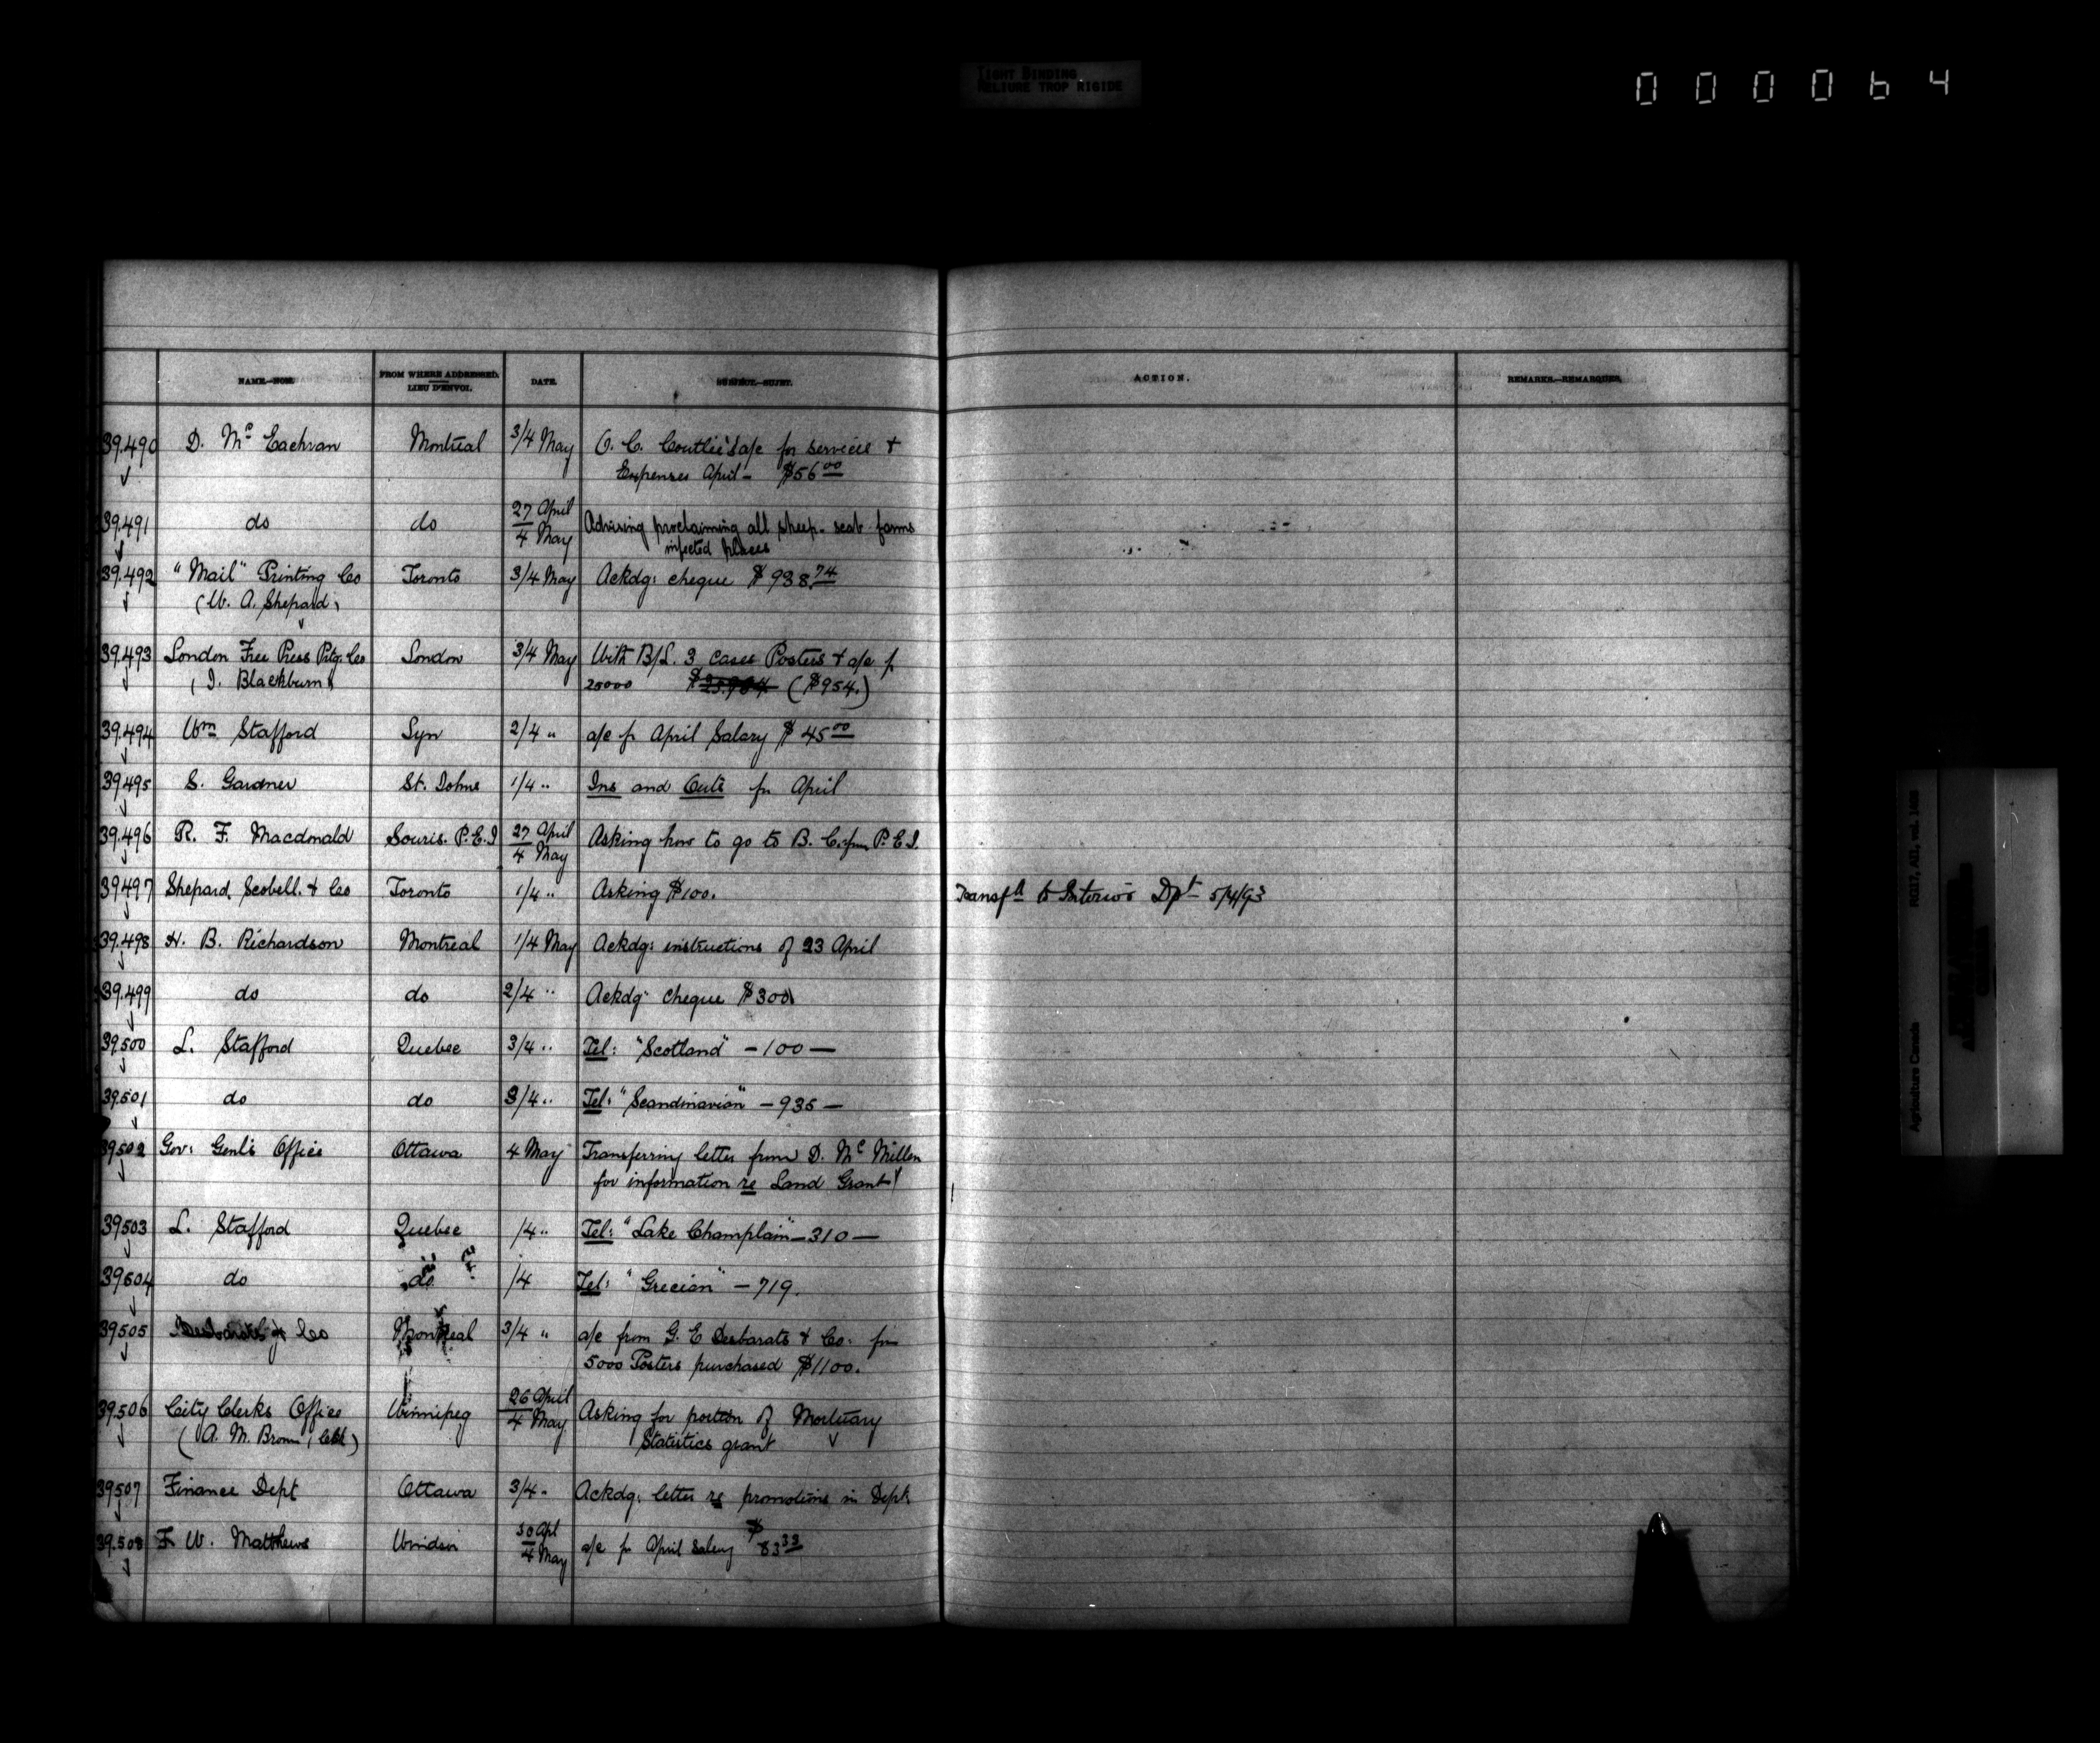 TIGHT BINDING
RELIURE TROP RIGIDE
000064
NAME.—NOM. FROM WHERE ADDRESSED. LIEU D'ENVOI. DATE. SUBJECT.—SUJET. ACTION. REMARKS.—REMARQUES.
39.490 D. Mc Eachran Montreal 3/4 May O. C. Coutlie's a/c for services &
Expenses April – $56 00
39.491 do do 27 April / 4 May Advising proclaiming all sheep-scab farms
infected places
39.492 "Mail" Printing Co Toronto 3/4 May Ackdg: cheque $938.74
(W. A. Shepard)
39.493 London Free Press Prtg: Co London 3/4 May With B/L. 3 cases Posters & a/c f
( J. Blackburn ) 25000 ($954.)
39.494 Wm Stafford Lyn 2/4 " a/c fr April Salary $45 00
39.495 S. Gardner St. Johns 1/4 " Ins and Outs fr April
39.496 R. F. Macdonald Souris. P.E.I 27 April / 4 May Asking how to go to B. C. from P.E.I.
39.497 Shepard, Scobell & Co Toronto 1/4 " Asking $100. Transfd to Interior Dpt 5/4/93
39.498 H. B. Richardson Montreal 1/4 May Ackdg: instructions of 23 April
39.499 do do 2/4 " Ackdg: cheque $300
39.500 L. Stafford Quebec 3/4 " Tel: "Scotland" – 100 –
39.501 do do 3/4 " Tel: "Scandinavian" – 935 –
39502 Gov: Genl's Office Ottawa 4 May Transferring letter from D. Mc Millen
for information re Land Grant
39.503 L. Stafford Quebec /4 " Tel: "Lake Champlain" – 310 –
39.504 do do /4 Tel: "Grecian" – 719.
39505 Desbarats & Co Montreal 3/4 " a/c from G. E Desbarats & Co. for
5000 Posters purchased $1100.
39.506 City Clerks Office Winnipeg 26 April / 4 May Asking for portion of Mortuary
( A. M. Brown, Clk ) Statistics grant
39507 Finance Dept Ottawa 3/4 " Ackdg: letter re promotions in Dept.
39.508 F W. Matthews Windsor 30 Apl / 4 May a/c fr April Salary $83 33
Agriculture Canada RG17, AII, vol. 1465